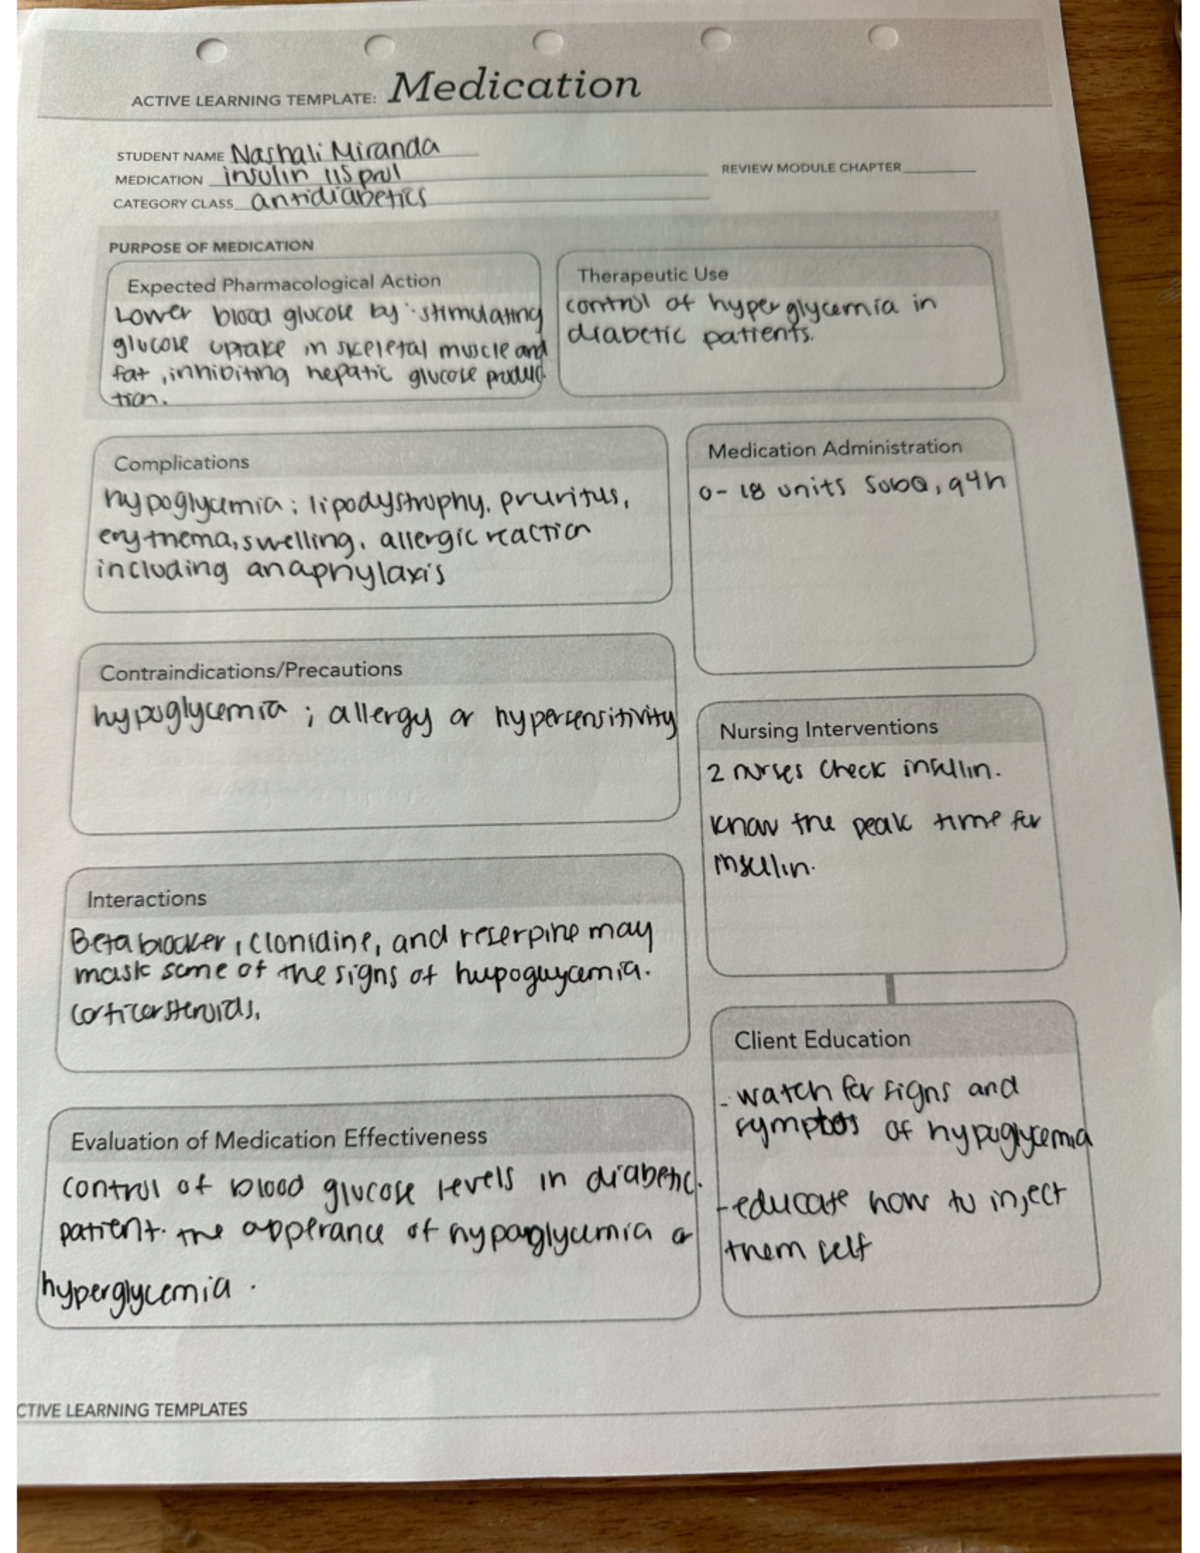 ACTIVE LEARNING TEMPLATE: Medication
STUDENT NAME Nashali Miranda
MEDICATION insulin lispro
REVIEW MODULE CHAPTER
CATEGORY CLASS antidiabetics
PURPOSE OF MEDICATION
Expected Pharmacological Action
Lower blood glucose by stimulating
glucose uptake in skeletal muscle and
fat, inhibiting hepatic glucose produc-
tion.
Therapeutic Use
control of hyperglycemia in
diabetic patients.
Complications
hypoglycemia; lipodystrophy, pruritus,
erythema, swelling, allergic reaction
including anaphylaxis
Medication Administration
0-18 units SubQ, q4h
Contraindications/Precautions
hypoglycemia ; allergy or hypersensitivity
Nursing Interventions
2 nurses check insulin.
Know the peak time for
insulin.
Interactions
Beta blocker, clonidine, and reserpine may
mask some of the signs of hypoglycemia.
corticosteroids,
Client Education
- watch for signs and
symptoms of hypoglycemia
- educate how to inject
them self
Evaluation of Medication Effectiveness
control of blood glucose levels in diabetic
patient. the apperance of hypoglycemia or
hyperglycemia.
CTIVE LEARNING TEMPLATES